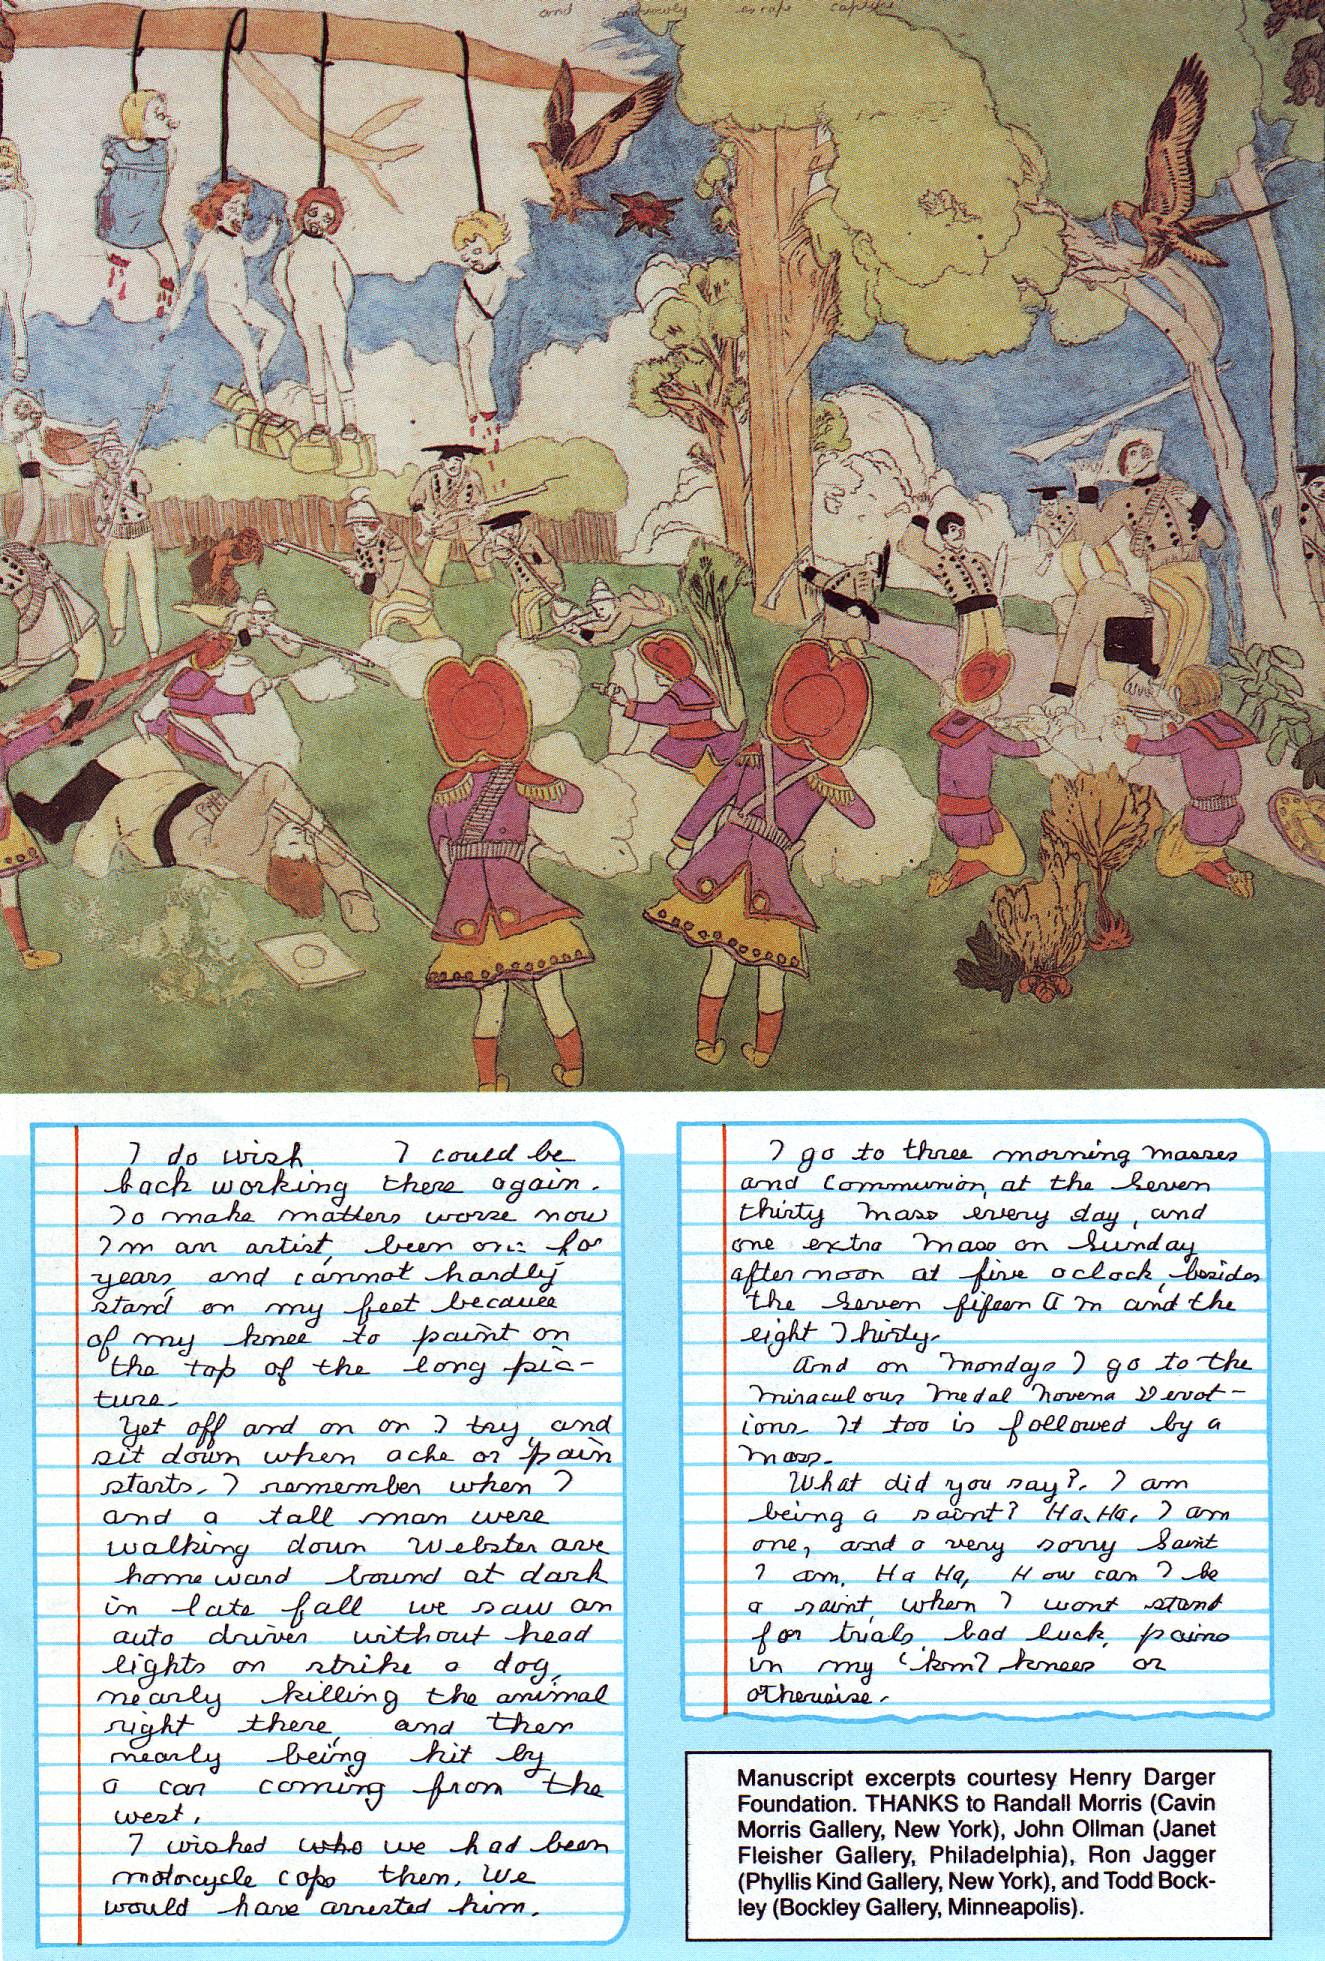 and escape capture
I do wish I could be
back working there again.
To make matters worse now
I'm an artist, been one for
years, and cannot hardly
stand on my feet because
of my knee to paint on
the top of the long pic-
ture.
Yet off and on on I try, and
sit down when ache or pain
starts. I remember when I
and a tall man were
walking down Webster ave
homeward bound at dark
in late fall we saw an
auto driver without head
lights on strike a dog,
nearly killing the animal
right there, and then
nearly being hit by
a car coming from the
west.
I wished who we had been
motorcycle cops then. We
would have arrested him.
I go to three morning masses
and Communion, at the Seven
thirty Mass every day, and
one extra Mass on Sunday
afternoon at five oclock, besides
the Seven fifeen A m and the
eight Thirty.
And on Mondays I go to the
Miraculous Medal Novena Devot-
ions. It too is followed by a
mass.
What did you say?. I am
being a saint? Ha, Ha, I am
one, and a very sorry Saint
I am. Ha Ha, How can I be
a saint, when I wont stand
for trials, bad luck, pains
in my knees or
otherwise.
Manuscript excerpts courtesy Henry Darger
Foundation. THANKS to Randall Morris (Cavin
Morris Gallery, New York), John Ollman (Janet
Fleisher Gallery, Philadelphia), Ron Jagger
(Phyllis Kind Gallery, New York), and Todd Bock-
ley (Bockley Gallery, Minneapolis).